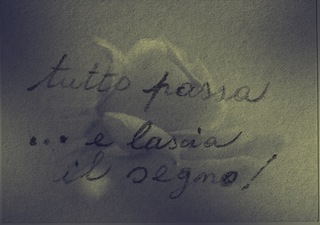 tutto passa
... e lascia
il segno!